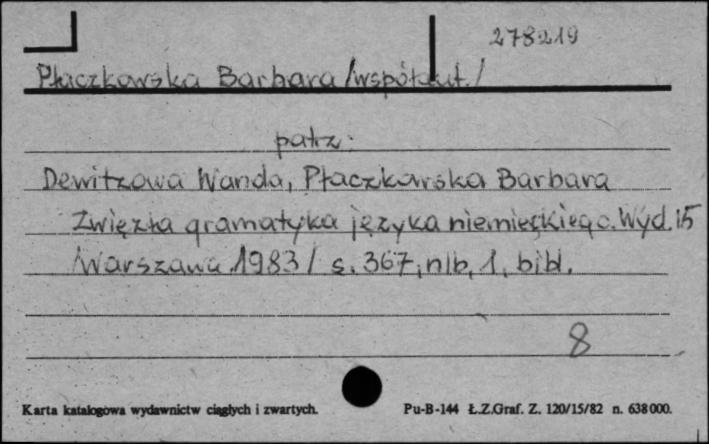 278219
Płaczkowska Barbara /współaut./
patrz:
Dewitzowa Wanda, Płaczkowska Barbara
Zwięzła gramatyka języka niemieckiego. Wyd. i5
/Warszawa 1983/ s. 367, nlb, 1, bibl.
8
Karta katalogowa wydawnictw ciągłych i zwartych. Pu-B-144 Ł.Z.Graf. Z. 120/15/82 n. 638000.